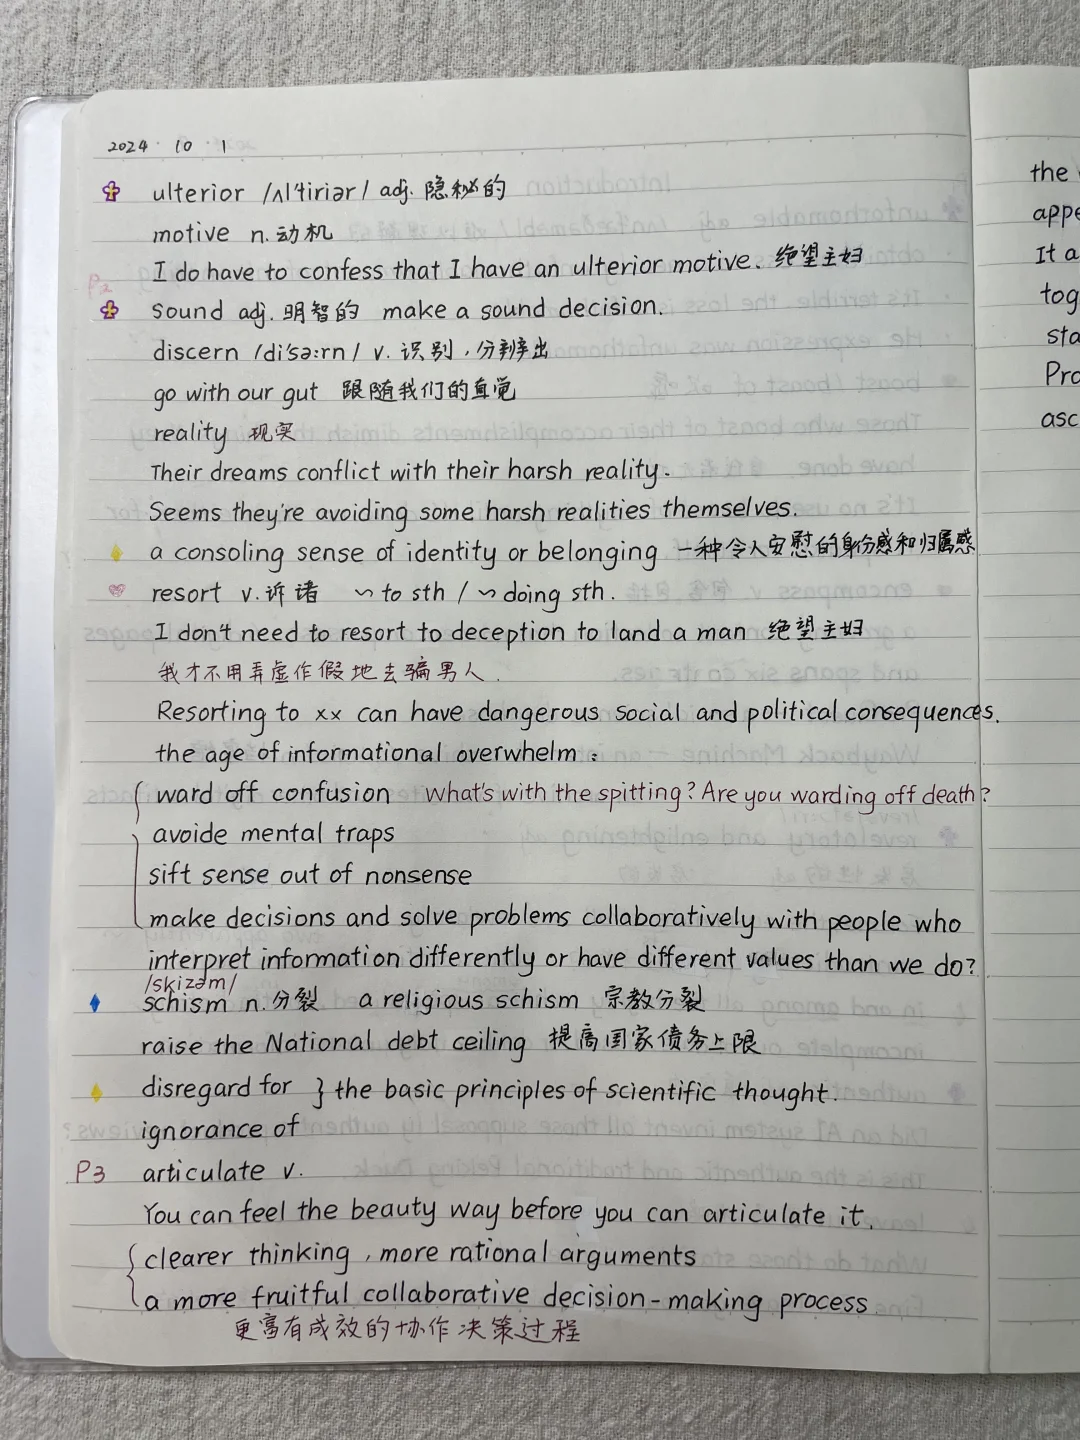 2024 · 10 · 1
ulterior /ʌl'tiriər/ adj. 隐秘的
motive n. 动机
I do have to confess that I have an ulterior motive. 绝望主妇
P2
sound adj. 明智的 make a sound decision.
discern /di'sə:rn/ v. 识别，分辨出
go with our gut 跟随我们的直觉
reality 现实
Their dreams conflict with their harsh reality.
Seems they're avoiding some harsh realities themselves.
a consoling sense of identity or belonging 一种令人安慰的身份感和归属感
resort v. 诉诸 ~ to sth / ~ doing sth.
I don't need to resort to deception to land a man 绝望主妇
我才不用弄虚作假地去骗男人.
Resorting to xx can have dangerous social and political consequences.
the age of informational overwhelm:
ward off confusion What's with the spitting? Are you warding off death?
avoide mental traps
sift sense out of nonsense
make decisions and solve problems collaboratively with people who
interpret information differently or have different values than we do?
/skizəm/
schism n. 分裂 a religious schism 宗教分裂
raise the National debt ceiling 提高国家债务上限
disregard for } the basic principles of scientific thought.
ignorance of
P3 articulate v.
You can feel the beauty way before you can articulate it.
clearer thinking, more rational arguments
a more fruitful collaborative decision-making process
更富有成效的协作决策过程
the
appe
It a
tog
sta
Pro
asc